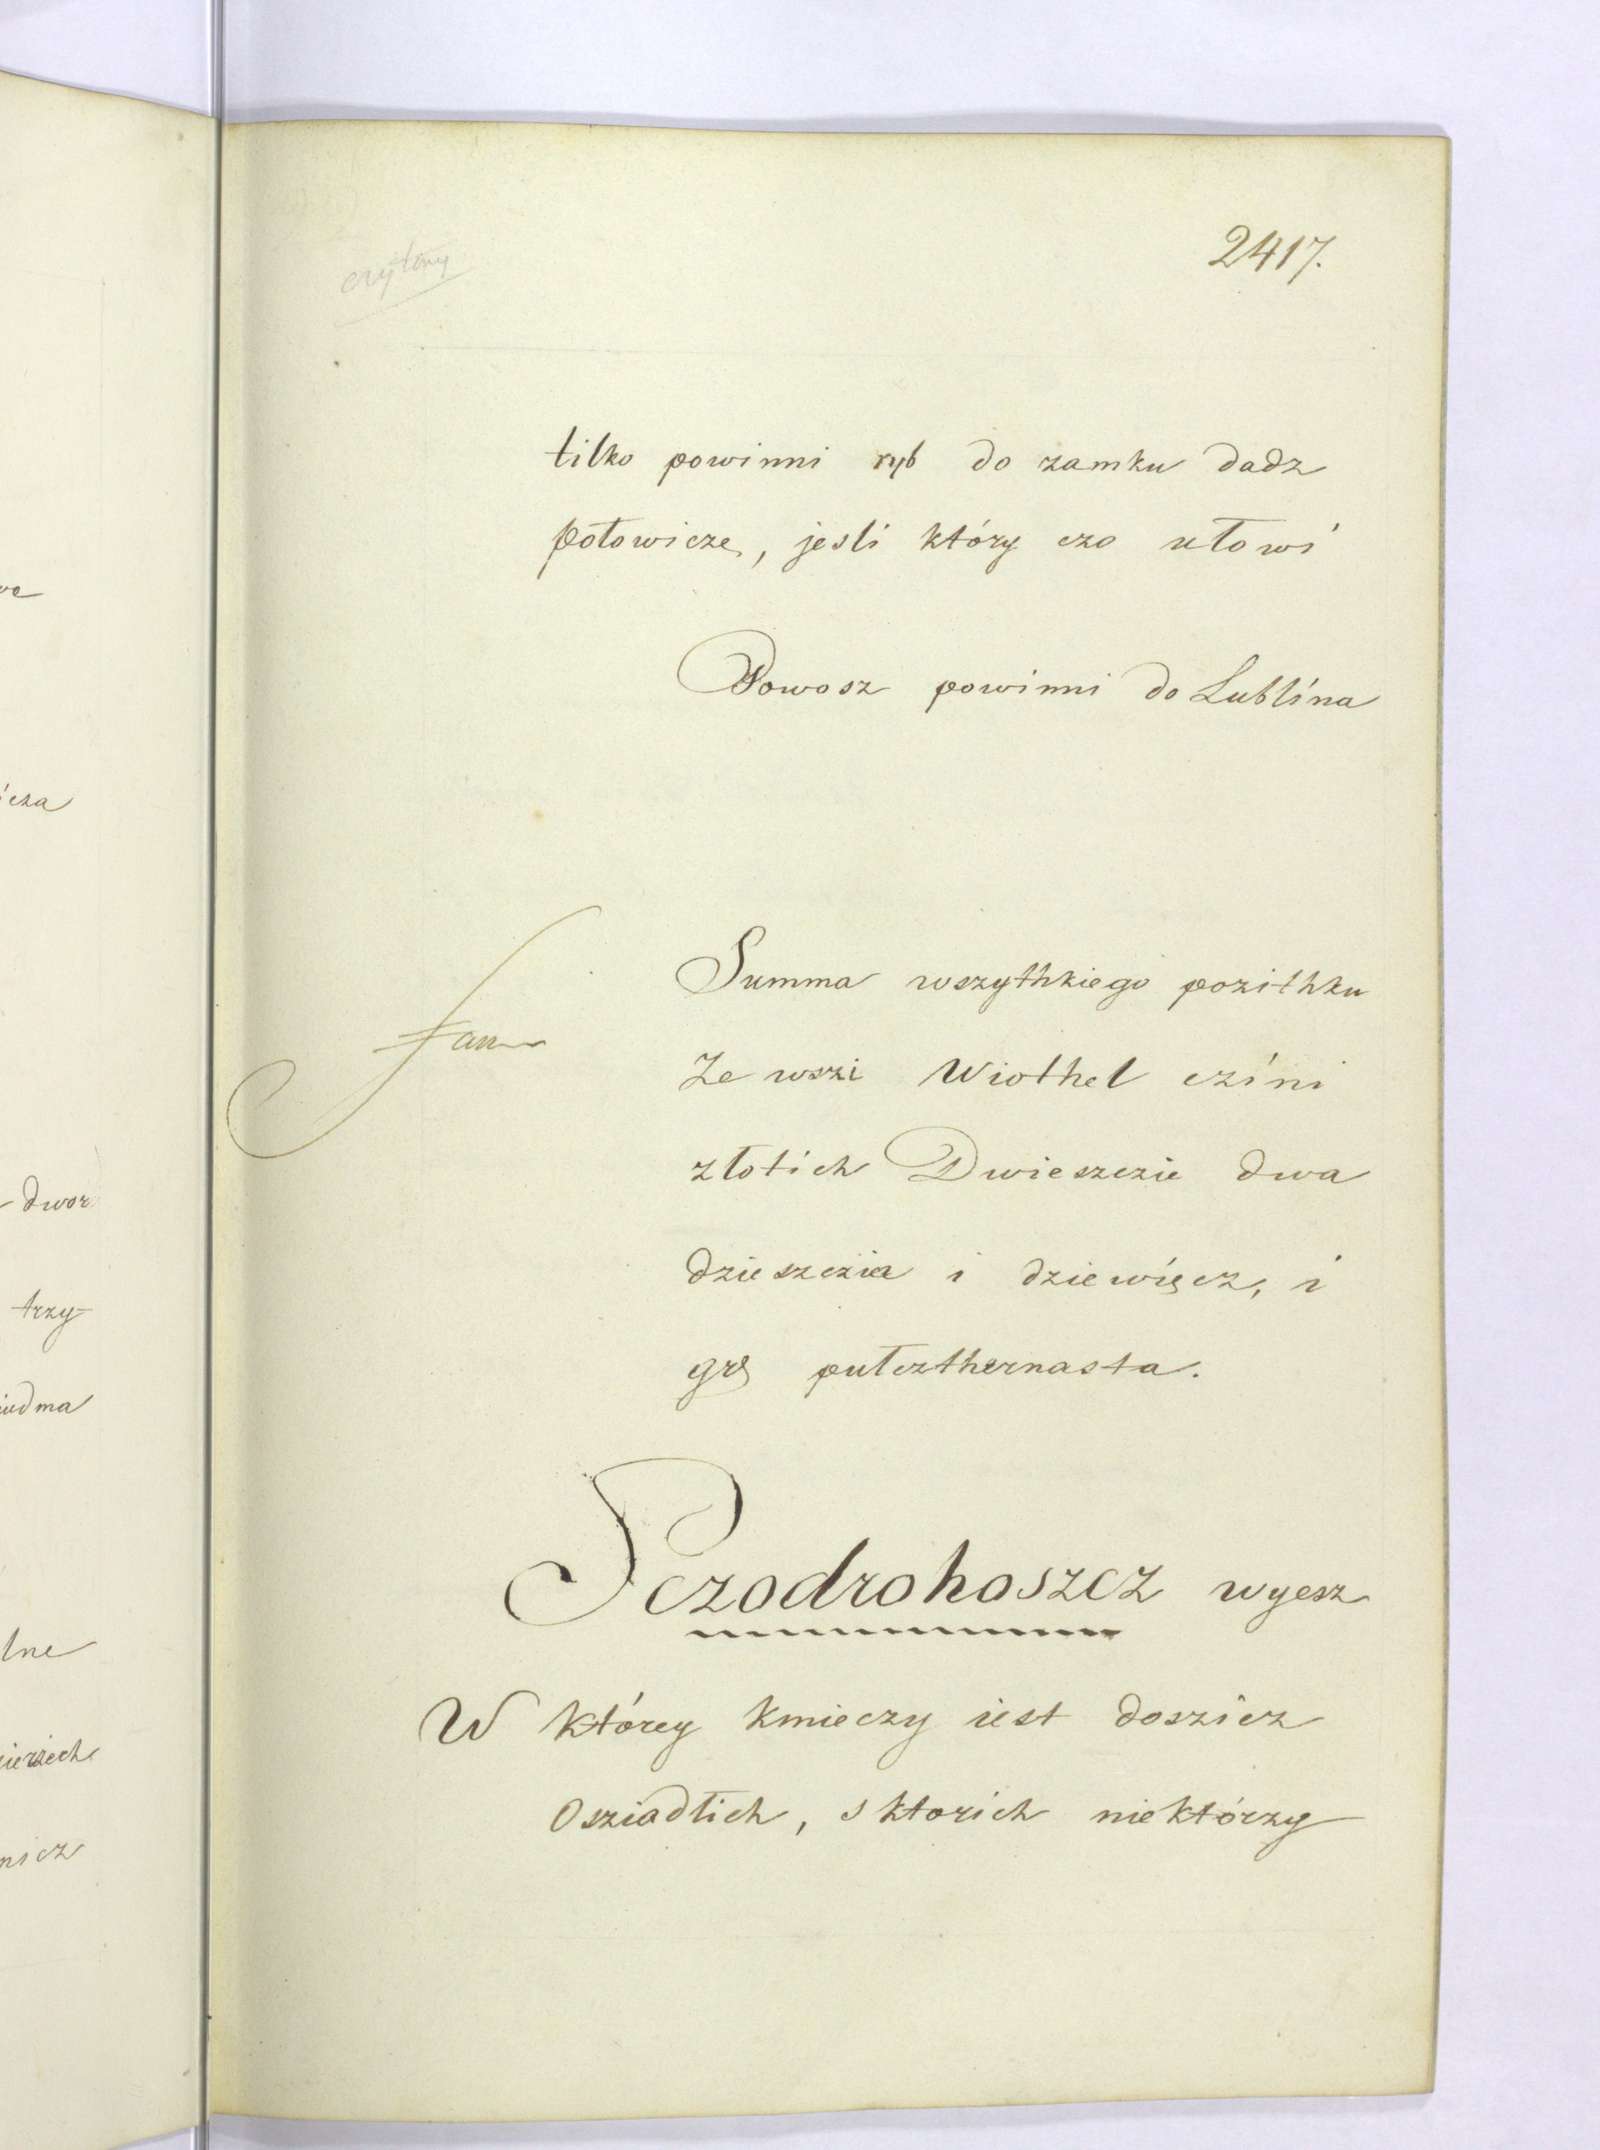 2417.
tilko powinni ryb do zamku dadz
połowicze, jesli który czo ułowi
Powosz powinni do Lublina
Summa wszythkiego pozithku
Ze wszi Wiothel czini
złotich Dwieszczie dwa
dzieszczia i dziewięcz, i
grs pułczthernasta.
Sczodrohoszcz wyesz
W którey kmieczy iest doszicz
Osziadłich, s ktorich niektórzy
icza
dwor
trzy-
iudma
lne
nicz